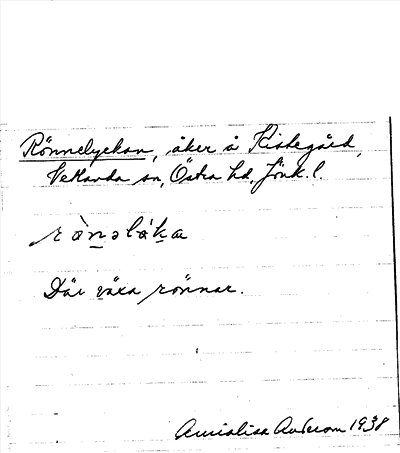 Rönnelyckan, åker å Kistegård,
Vetlanda sn, Östra hd, Jönk. l.
Där växa rönnar.
Annalisa Anderson 1938